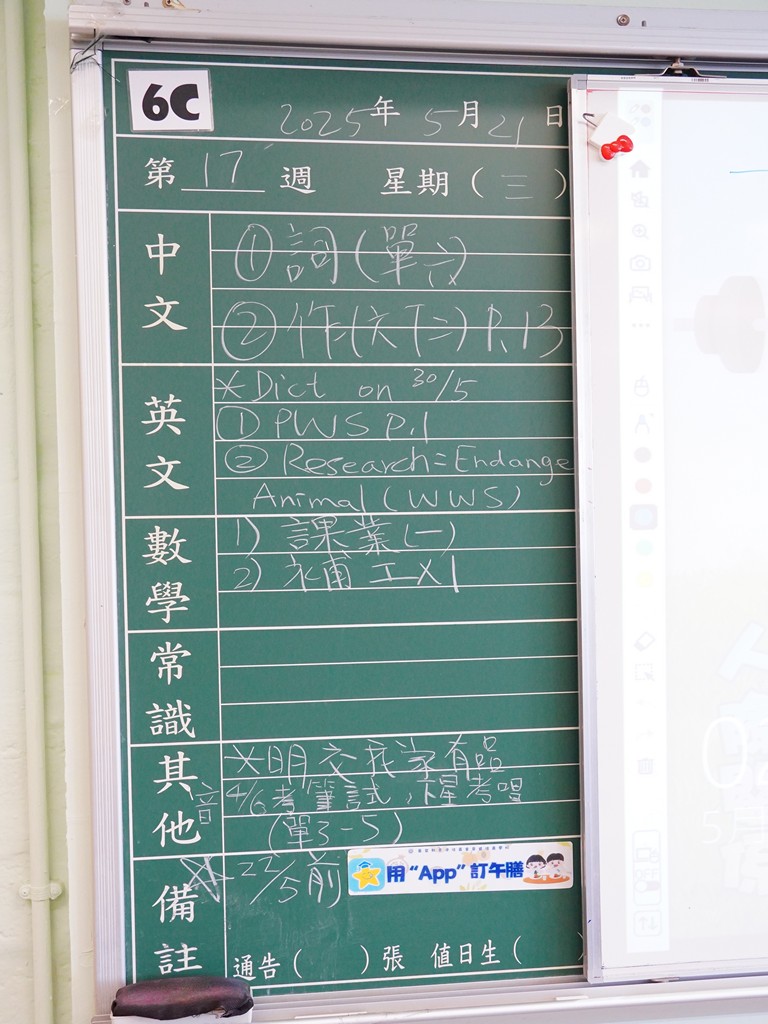 6C 2025年 5月 21日
第 17 週 星期(三)
中文
① 詞(單六)
② 作(六下二) P.13
英文
*Dict on 30/5
① PWS P.1
② Research = Endange
Animal (WWS)
數學
1) 課業(一)
2) 補 工X1
常識
其他
*明交我家有品
音 4/6考筆試，下星考唱
(單3-5)
備註
22/5前
用“App”訂午膳
通告( )張 值日生(